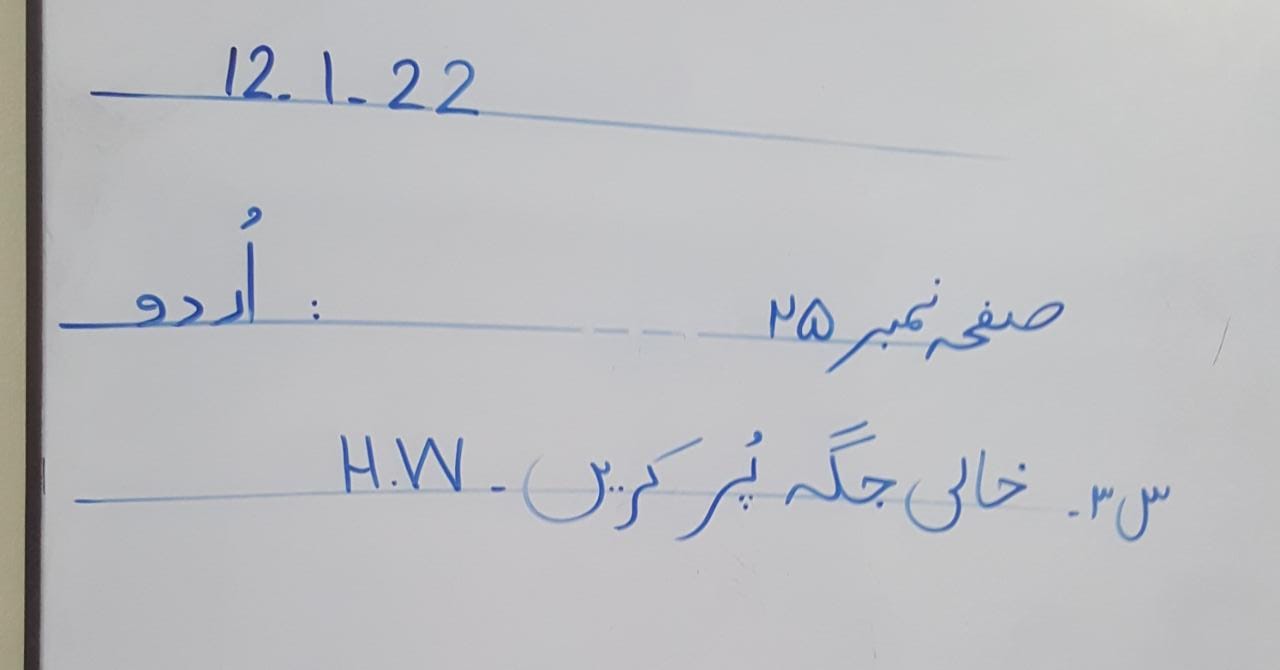 12.1.22
صفحہ نمبر ۲۵ : اُردو
س ۳۔ خالی جگہ پُر کریں۔ H.W